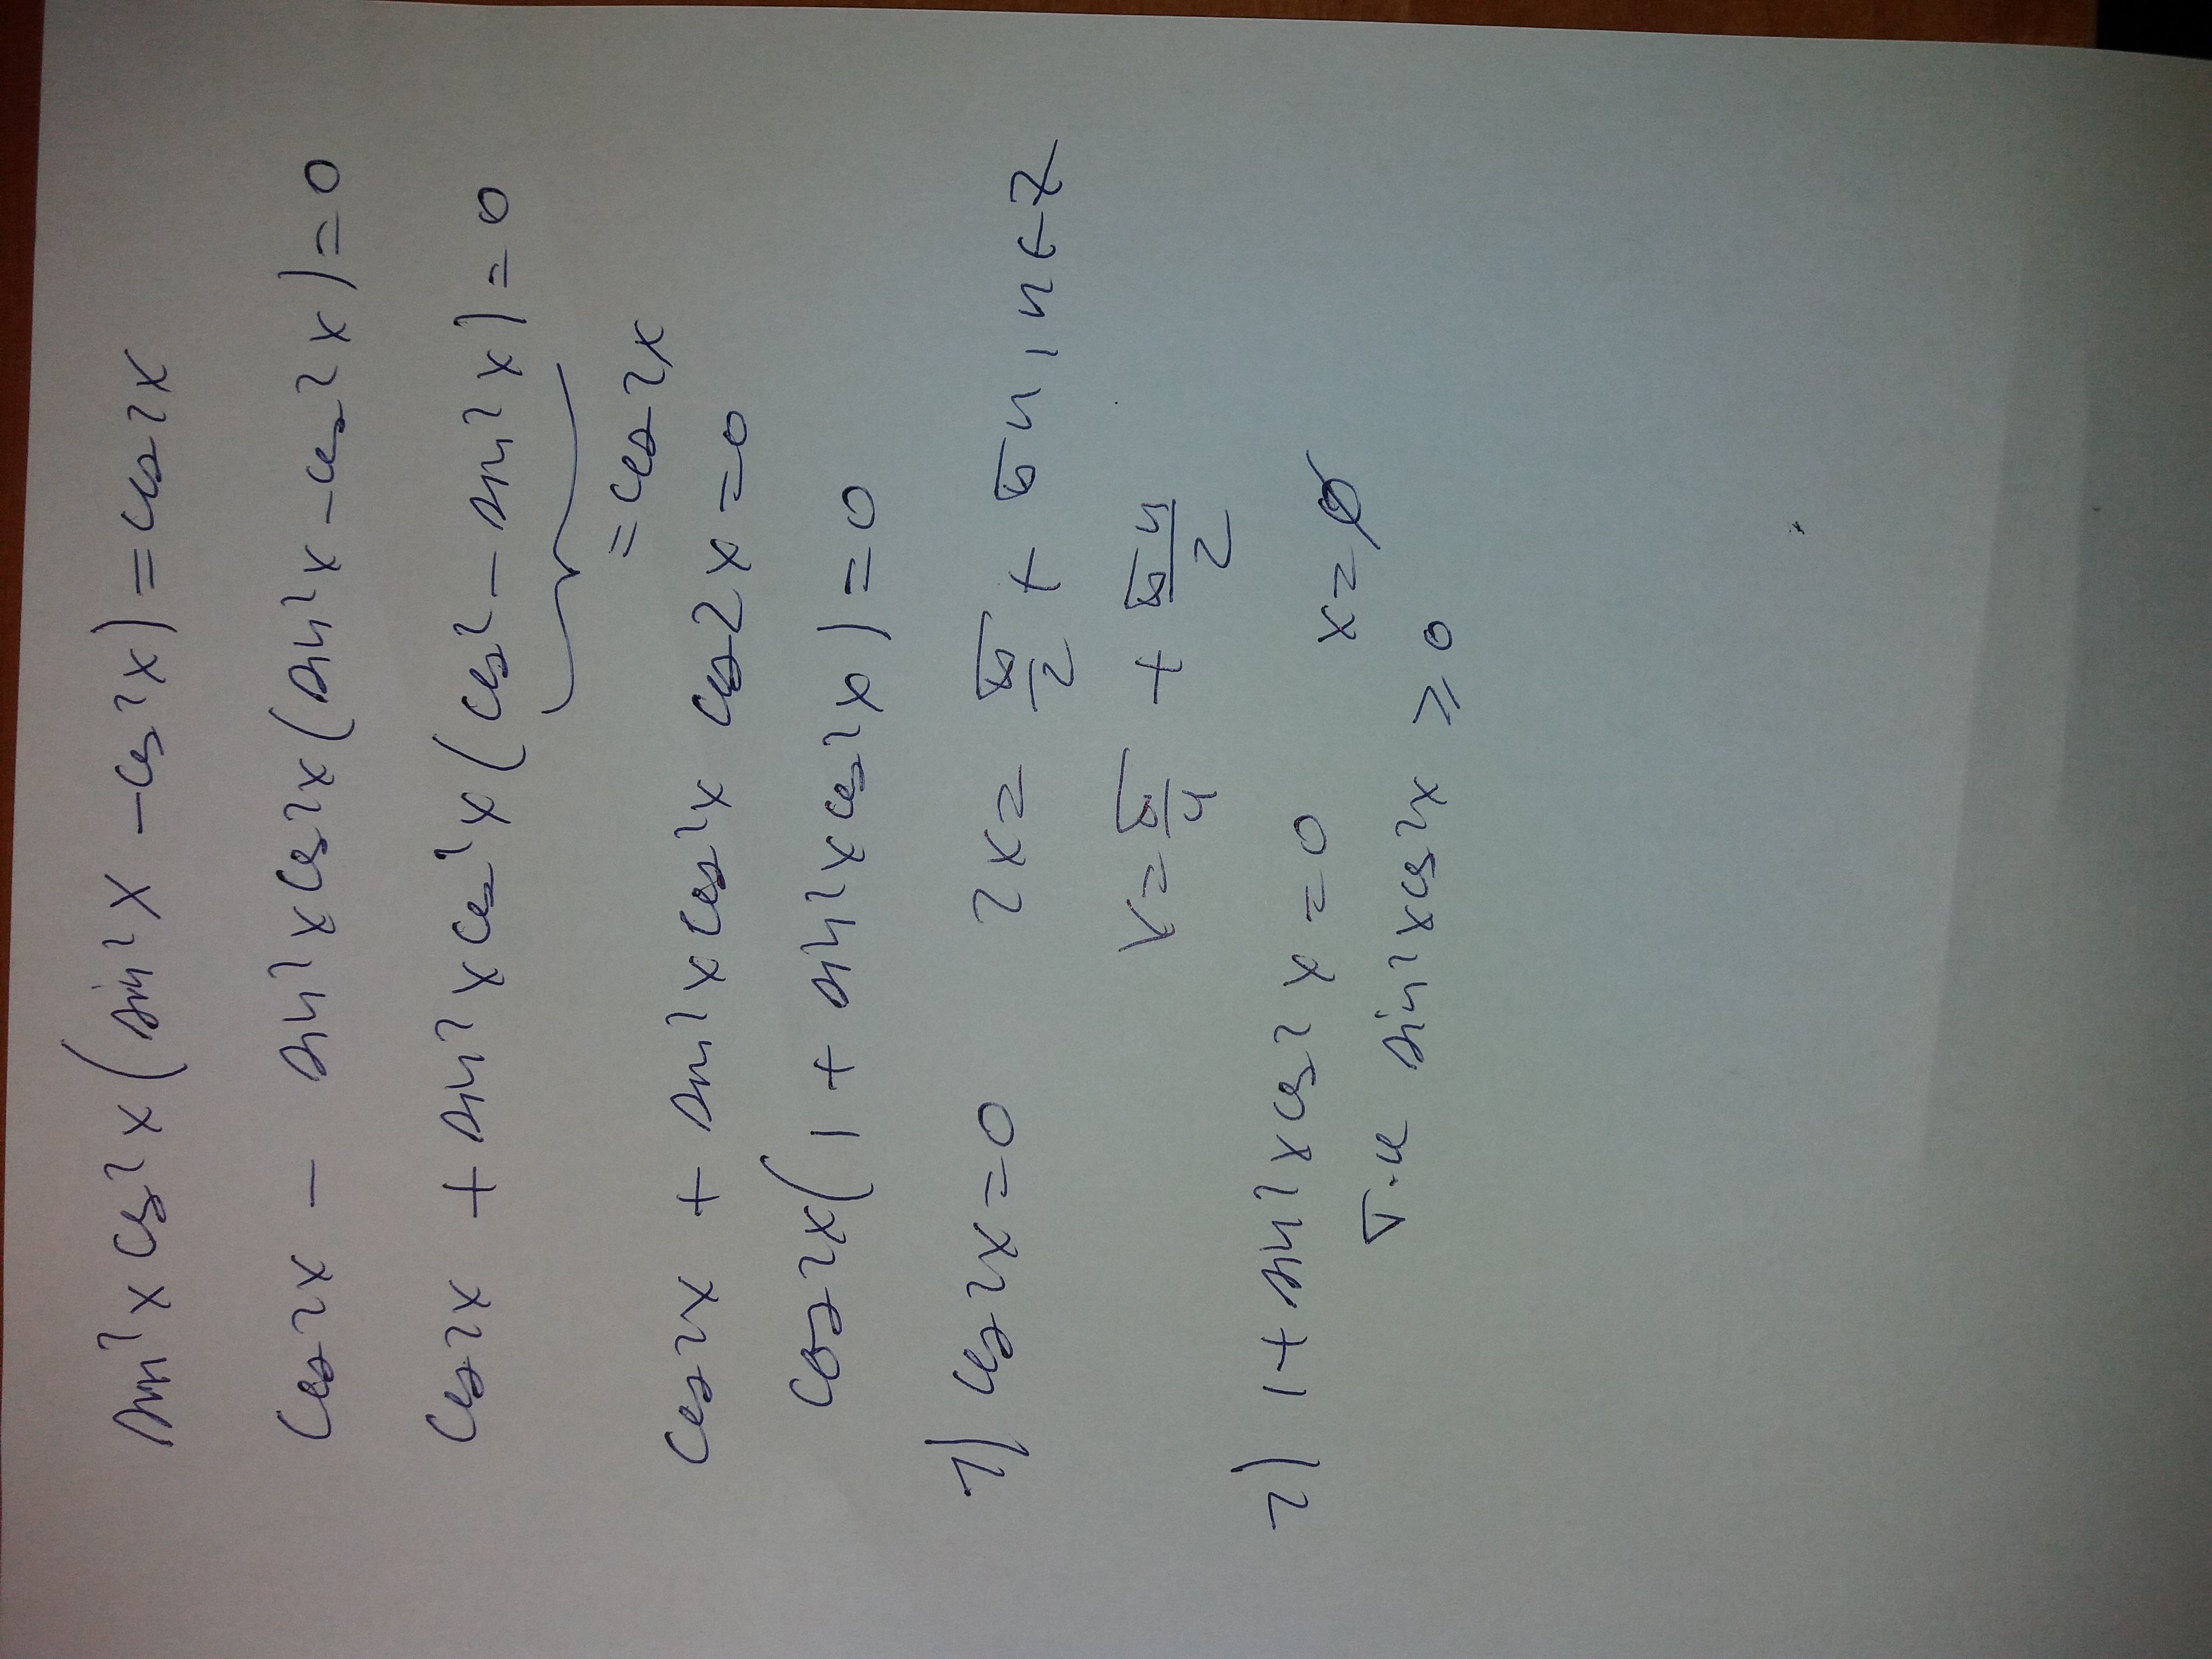 sin²x cos²x (sin²x - cos²x) = cos2x
cos2x - sin²x cos²x (sin²x - cos²x) = 0
cos2x + sin²x cos²x (cos² - sin²x) = 0
= cos2x
cos2x + sin²x cos²x cos2x = 0
cos2x (1 + sin²x cos²x) = 0
1) cos2x = 0 2x = π/2 + πn, n ∈ Z
x = π/4 + πn/2
2) 1 + sin²x cos²x = 0 x = ∅
т.к sin²x cos²x ≥ 0